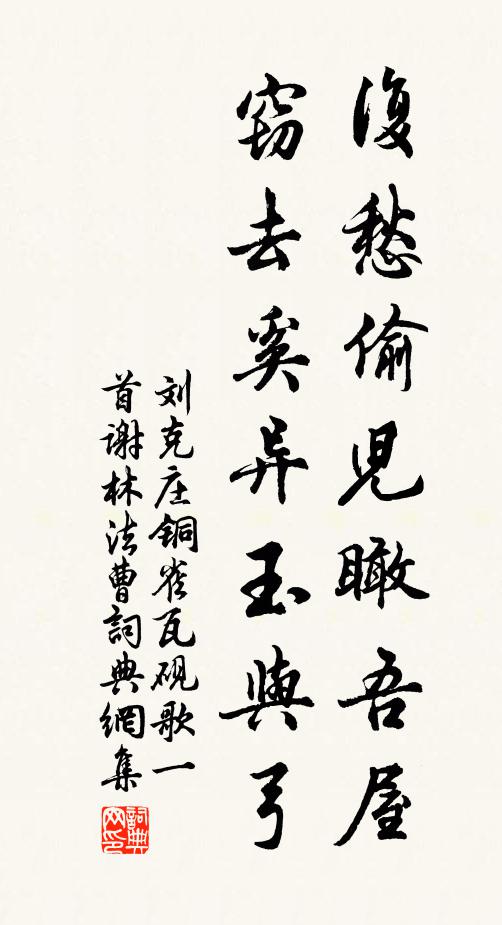 復愁偷兒瞰吾屋
竊去奚异玉與弓
刘克庄铜雀瓦砚歌一
首谢林法曹詞典網集
詞典网印